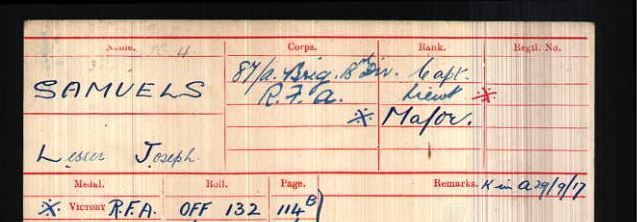 Name. Corps. Rank. Regtl. No.
4
SAMUELS 87/A. Brig. Div. Capt.
R.F.A. Lieut ※
※ Major.
Lesser Joseph.
Medal. Roll. Page. Remarks. K in A 29/9/17
※ VICTORY R.F.A. OFF 132 114B